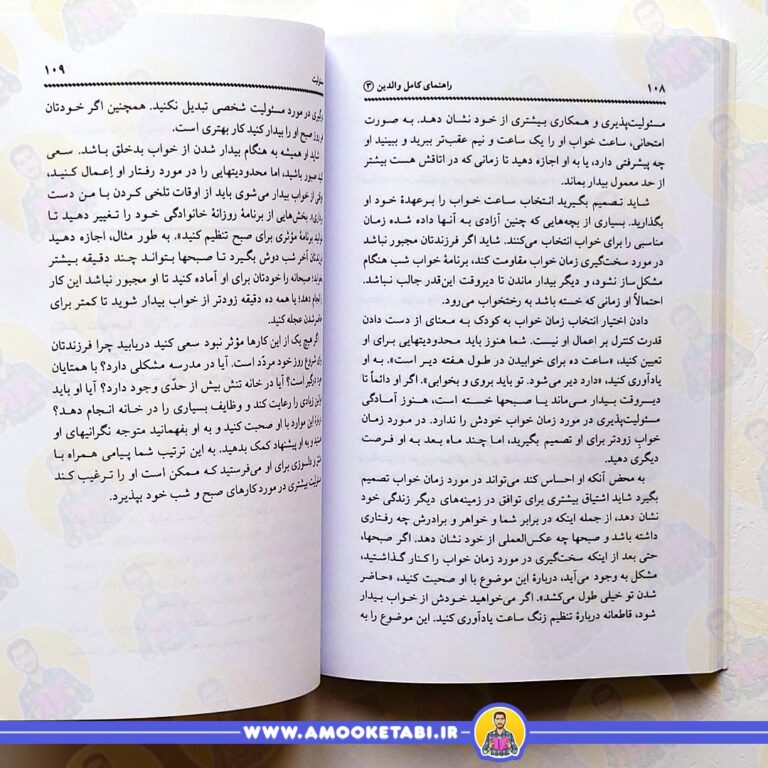 ۱۰۸
راهنمای کامل والدین ۳
مسئولیت‌پذیری و همکاری بیشتری از خود نشان دهد. به صورت
امتحانی، ساعت خواب او را یک ساعت و نیم عقب‌تر ببرید و ببینید او
چه پیشرفتی دارد، یا به او اجازه دهید تا زمانی که در اتاقش هست بیشتر
از حد معمول بیدار بماند.
شاید تصمیم بگیرید انتخاب ساعت خواب را برعهدهٔ خود او
بگذارید. بسیاری از بچه‌هایی که چنین آزادی به آنها داده شده زمان
مناسبی را برای خواب انتخاب می‌کنند. شاید اگر فرزندتان مجبور نباشد
در مورد سخت‌گیری زمان خواب مقاومت کند، برنامهٔ خواب شب هنگام
مشکل‌ساز نشود، و دیگر بیدار ماندن تا دیروقت این‌قدر جالب نباشد.
احتمالاً او زمانی که خسته باشد به رختخواب می‌رود.
دادن اختیار انتخاب زمان خواب به کودک به معنای از دست دادن
قدرت کنترل بر اعمال او نیست. شما هنوز باید محدودیتهایی برای او
تعیین کنید، «ساعت ده برای خوابیدن در طول هفته دیر است». به او
یادآوری کنید، «دارد دیر می‌شود. تو باید بروی و بخوابی». اگر او دائماً تا
دیروقت بیدار می‌ماند یا صبحها خسته است، هنوز آمادگی
مسئولیت‌پذیری در مورد زمان خواب خودش را ندارد. در مورد زمان
خواب زودتر برای او تصمیم بگیرید، اما چند ماه بعد به او فرصت
دیگری دهید.
به محض آنکه او احساس کند می‌تواند در مورد زمان خواب تصمیم
بگیرد شاید اشتیاق بیشتری برای توافق در زمینه‌های دیگر زندگی خود
نشان دهد، از جمله اینکه در برابر شما و خواهر و برادرش چه رفتاری
داشته باشد و صبحها چه عکس‌العملی از خود نشان دهد. اگر صبحها،
حتی بعد از اینکه سخت‌گیری در مورد زمان خواب را کنار گذاشتید،
مشکل به وجود می‌آید، دربارهٔ این موضوع با او صحبت کنید، «حاضر
شدن تو خیلی طول می‌کشد». اگر می‌خواهید خودش از خواب بیدار
شود، قاطعانه دربارهٔ تنظیم زنگ ساعت یادآوری کنید. این موضوع را به
۱۰۹
در مورد مسئولیت شخصی تبدیل نکنید. همچنین اگر خودتان
روز صبح او را بیدار کنید کار بهتری است.
شاید او همیشه به هنگام بیدار شدن از خواب بدخلق باشد. سعی
صبور باشید، اما محدودیتهایی را در مورد رفتار او اعمال کنید،
از خواب بیدار می‌شوی باید از اوقات تلخی کردن با من دست
بخش‌هایی از برنامهٔ روزانهٔ خانوادگی خود را تغییر دهید تا
برنامهٔ مؤثری برای صبح تنظیم کنید». به طور مثال، اجازه دهید
آخر شب دوش بگیرد تا صبحها بتواند چند دقیقه بیشتر
صبحانه را خودتان برای او آماده کنید تا او مجبور نباشد این کار
انجام دهد؛ یا همه ده دقیقه زودتر از خواب بیدار شوید تا کمتر برای
حاضر شدن عجله کنید.
اگر هیچ یک از این کارها مؤثر نبود سعی کنید دریابید چرا فرزندتان
شروع روز خود مردّد است. آیا در مدرسه مشکلی دارد؟ با همتایان
درگیر است؟ آیا در خانه تنش بیش از حدّی وجود دارد؟ آیا او باید
زیادی را رعایت کند و وظایف بسیاری را در خانه انجام دهد؟
این موارد با او صحبت کنید و به او بفهمانید متوجه نگرانیهای او
و به او پیشنهاد کمک بدهید. به این ترتیب شما پیامی همراه با
و دلسوزی برای او می‌فرستید که ممکن است او را ترغیب کند
مسئولیت بیشتری در مورد کارهای صبح و شب خود بپذیرد.
WWW.AMOOKETABI.IR